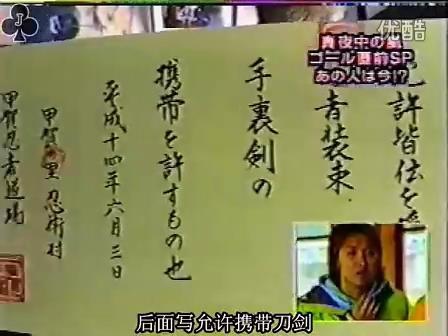 优酷
J
真夜中の嵐
ゴール直前SP
あの人は今!?
許皆伝を
者装束
手裏剣の
携帯を許すもの也
平成十四年六月三日
甲賀の里 忍術村
甲賀忍者道場
后面写允许携带刀剑